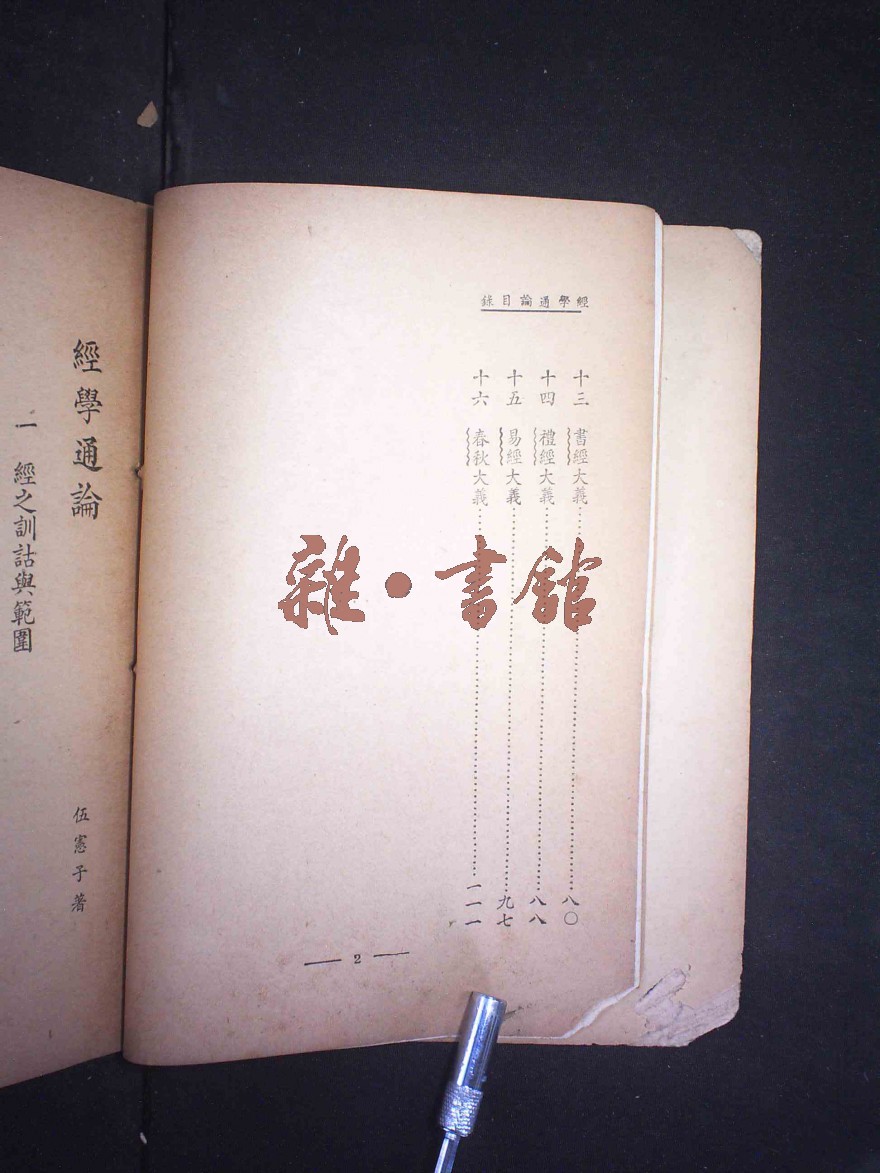 經學通論目錄
十三 書經大義……八〇
十四 禮經大義……八八
十五 易經大義……九七
十六 春秋大義……一一一
— 2 —
經學通論
伍憲子著
一 經之訓詁與範圍
雜·書館